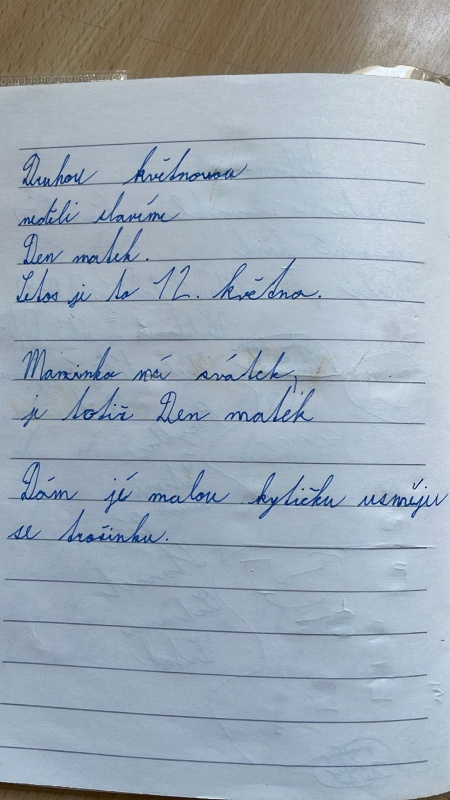 Druhou květnovou
neděli slavíme
Den matek.
Letos je to 12. května.
Maminka má svátek,
je totiž Den matek
Dám jé malou kytičku usměju
se trošinku.